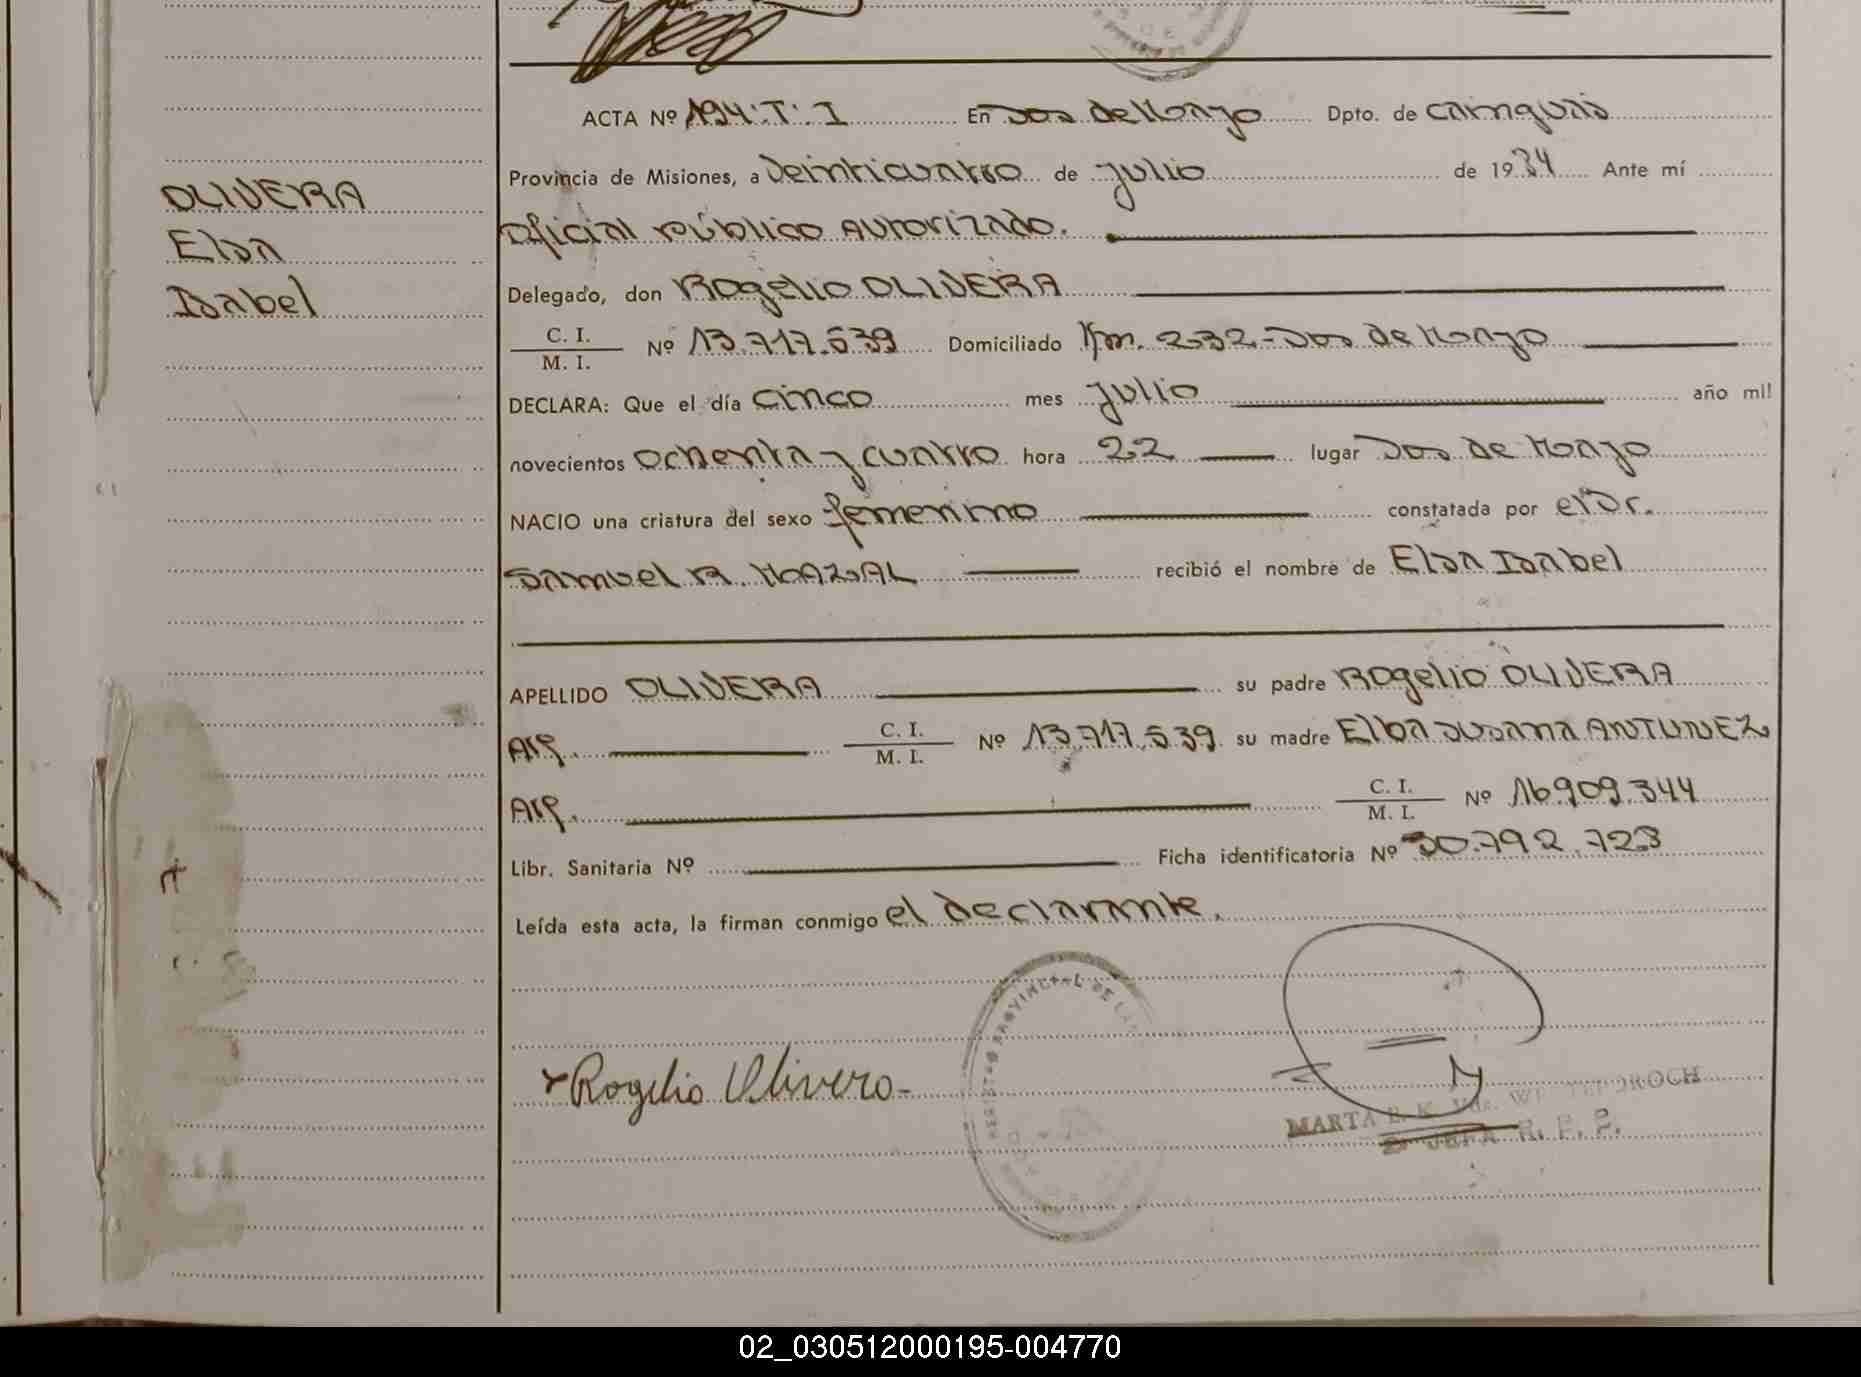 OLIVEIRA
Elsa
Isabel
ACTA Nº 194·T·I En Dos de Mayo Dpto. de Cainguás
Provincia de Misiones, a Veinticuatro de julio de 1984 Ante mí
Oficial Público Autorizado.
Delegado, don Rogelio OLIVEIRA
C. I.
M. I. Nº 13.717.539 Domiciliado Km. 232-Dos de Mayo
DECLARA: Que el día cinco mes julio año mil
novecientos ochenta y cuatro hora 22 lugar Dos de Mayo
NACIO una criatura del sexo femenino constatada por el Dr.
Samuel R. recibió el nombre de Elsa Isabel
APELLIDO OLIVEIRA su padre Rogelio OLIVEIRA
Arg. C. I.
M. I. Nº 13.717.539 su madre Elba Susana ANTUNEZ
Arg. C. I.
M. I. Nº 16.909.344
Libr. Sanitaria Nº Ficha identificatoria Nº 30.792.723
Leída esta acta, la firman conmigo el declarante.
REGISTRO PROVINCIAL DE LAS
Rogelio Olivero
MARTA E. K. Vda.
JEFA R. P. P.
02_030512000195-004770